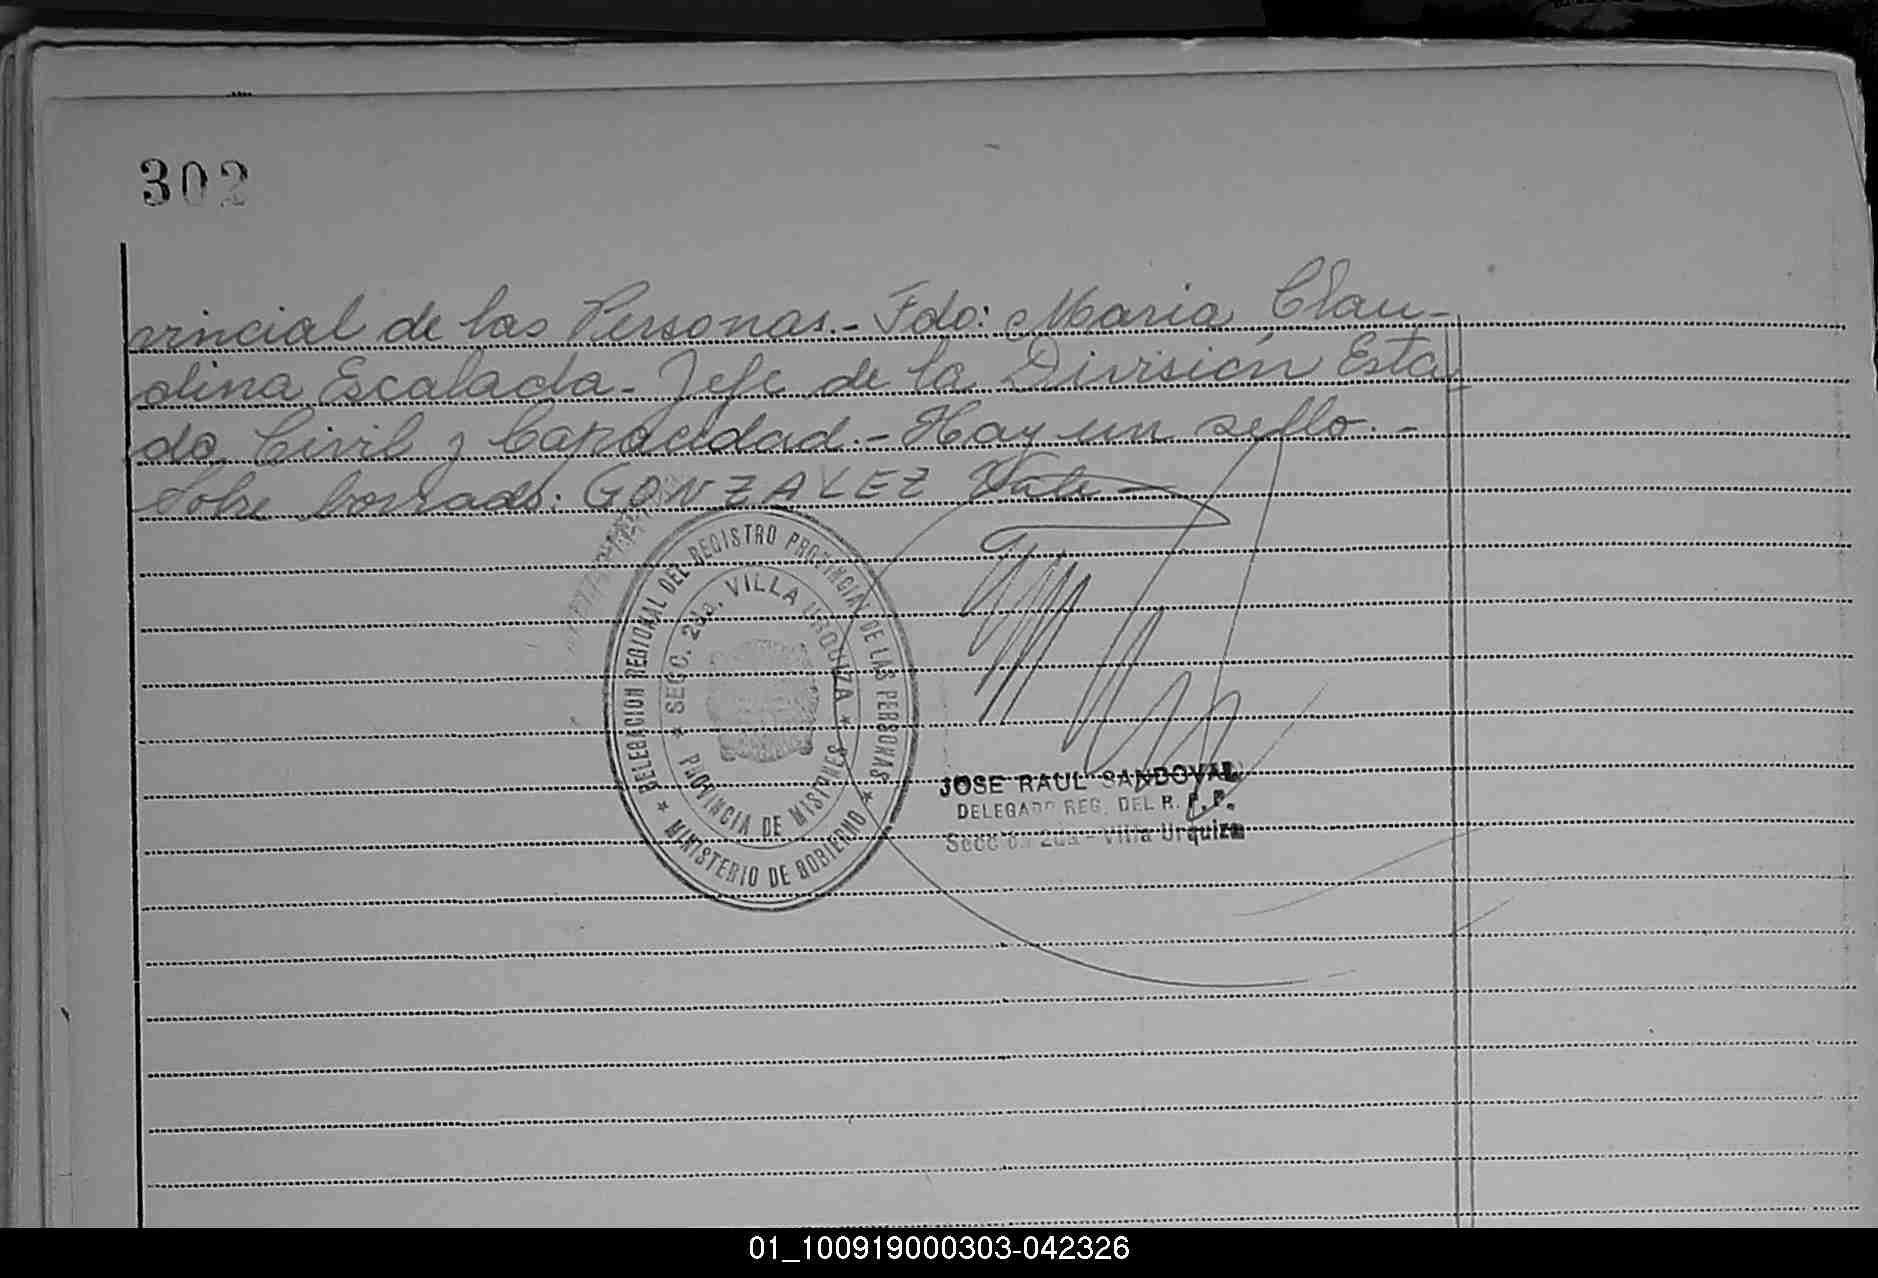 302
vincial de las Personas.- Fdo: Maria Clau-
dina Escalada - Jefe de la División Esta-
do Civil y Capacidad.- Hay un sello.-
Sobre borrado: GONZALEZ Vale-
DELEGACION REGIONAL DEL REGISTRO PROVINCIAL DE LAS PERSONAS
★ MINISTERIO DE GOBIERNO ★
★ SECC. 2da. VILLA URQUIZA ★
PROVINCIA DE MISIONES
JOSE RAUL SANDOVAL
DELEGADO REG. DEL R. P. P.
Sección 2da - Villa Urquiza
01_100919000303-042326